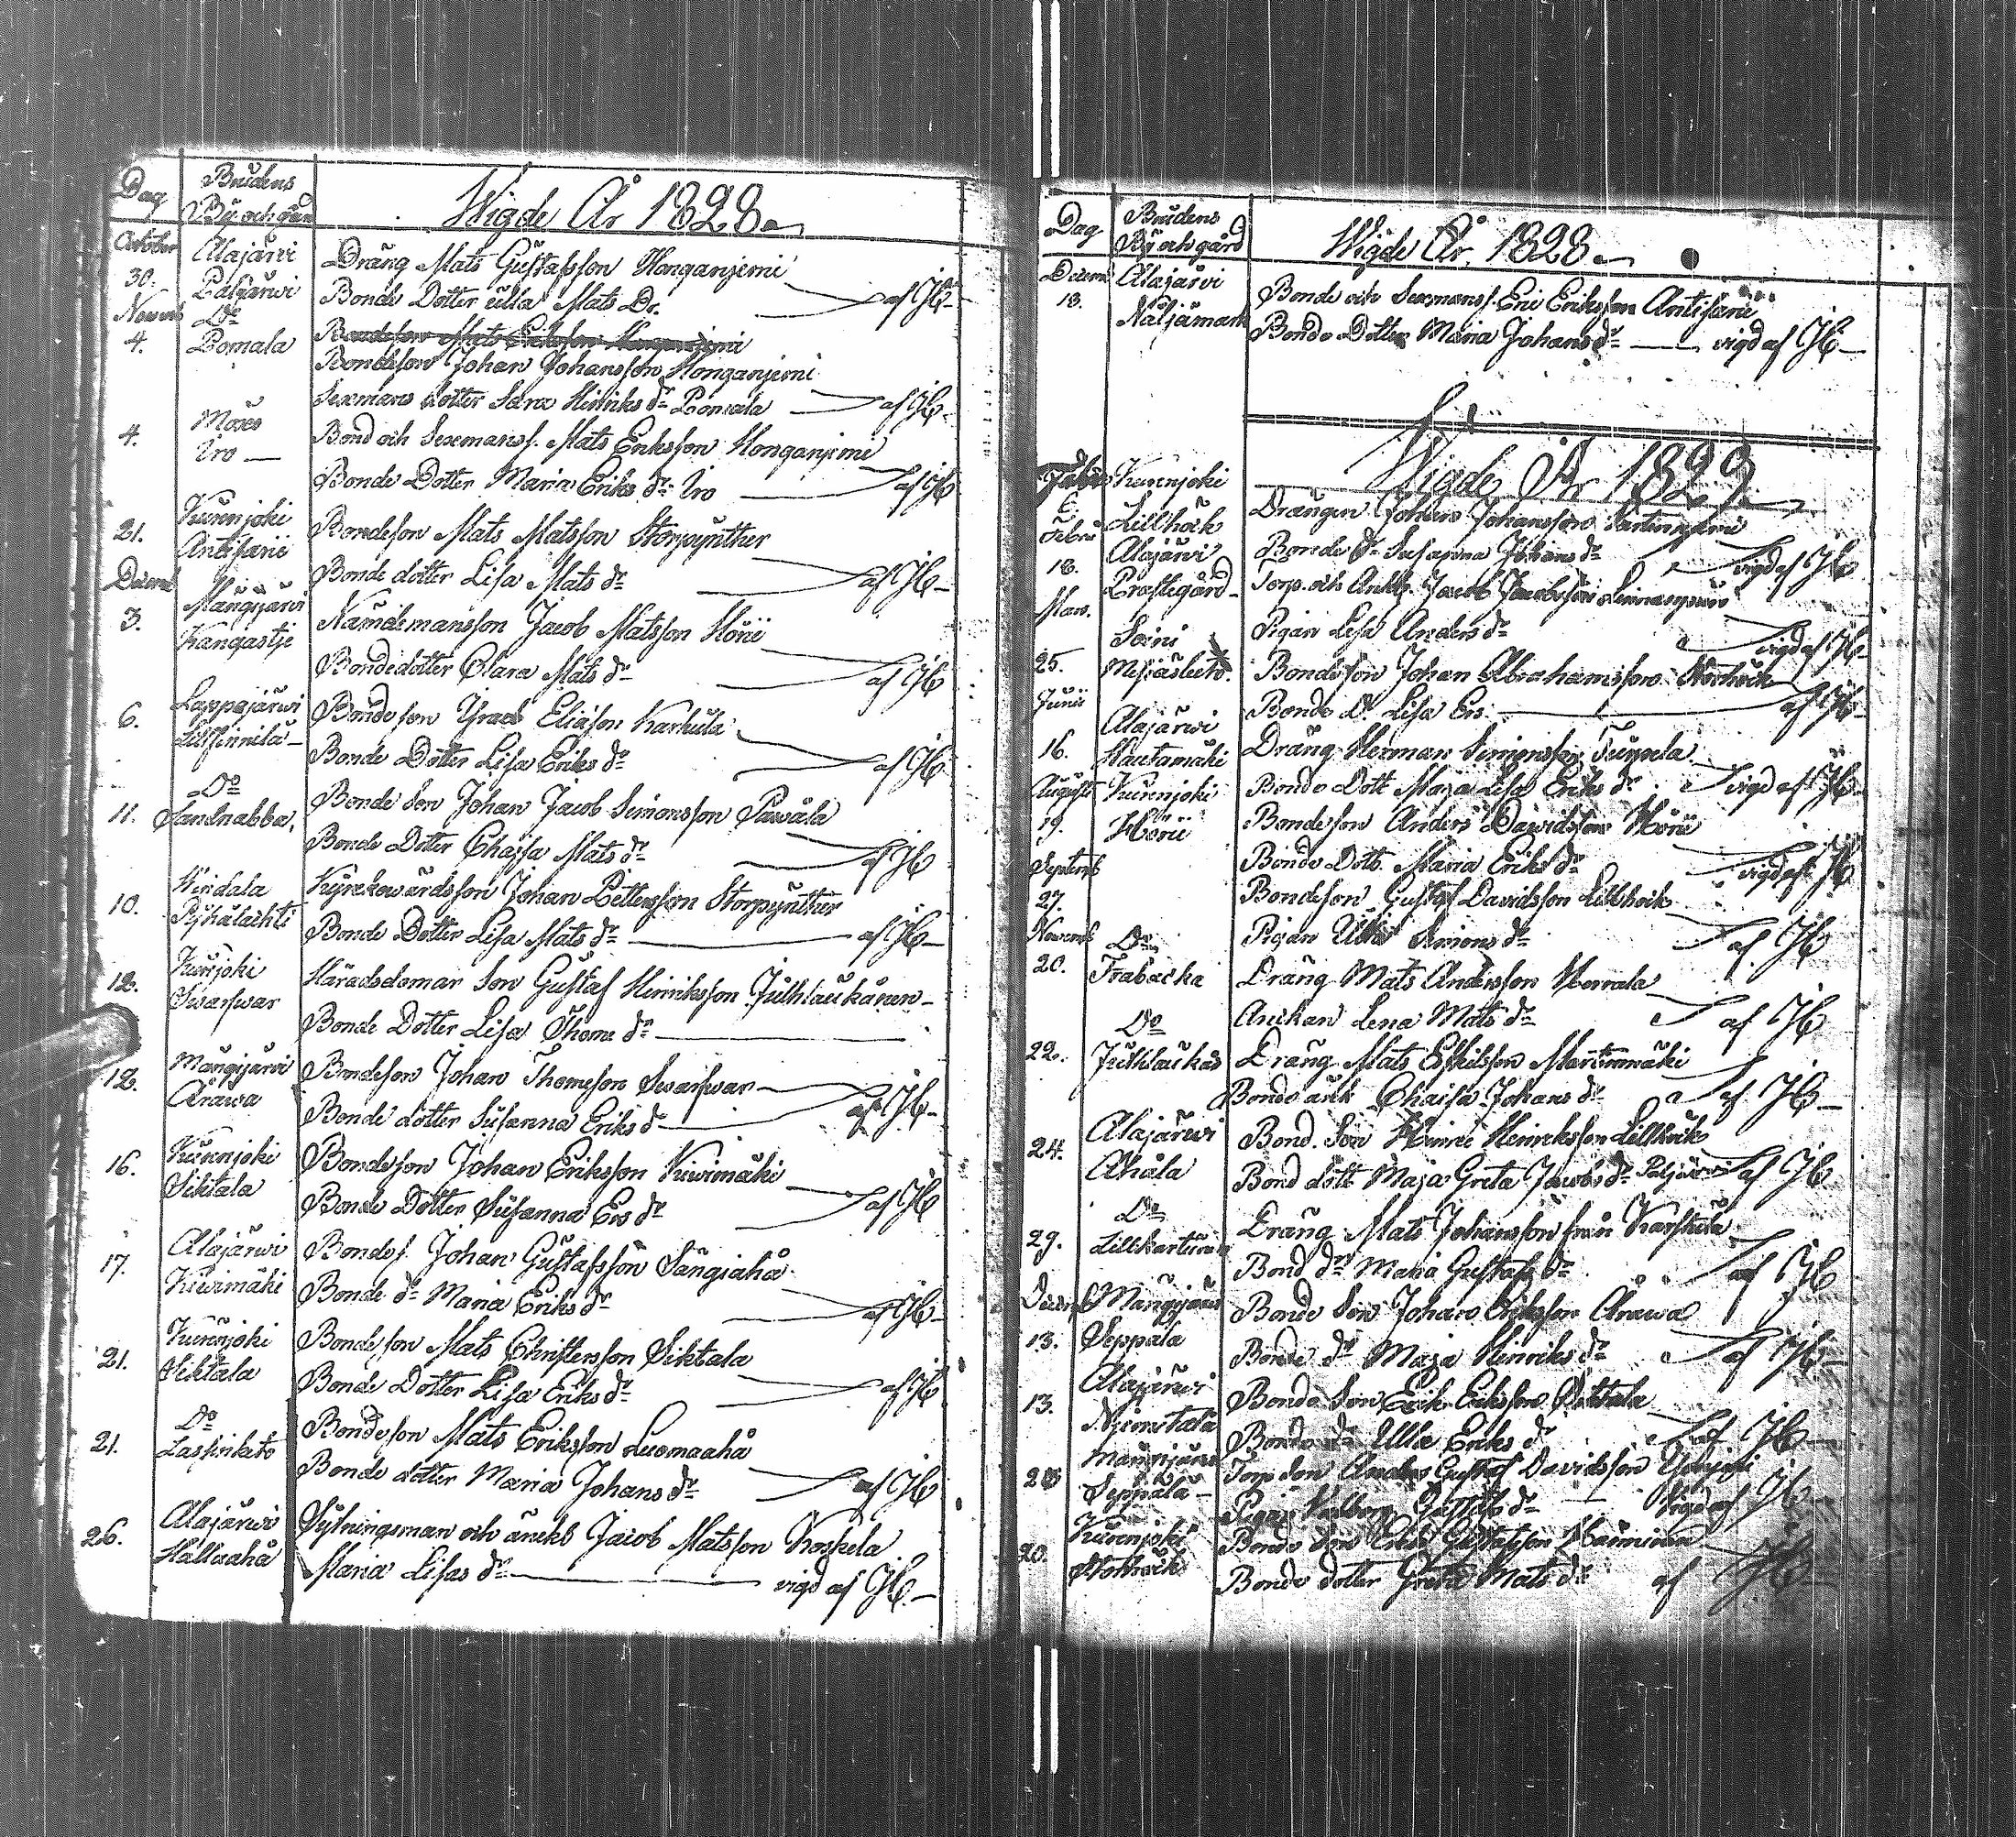 Dag
Brudens
By och gård
Wigde År 1828.
October
Alajärvi
Dräng Mats Gustafsson Honganjemi
30.
Paljärwi
Bonde Dotter Ulla Mats Dr. af JH
Novemb
Do
4.
Pomala
Bondeson Mats Eriksson
Bondeson Johan Johansson Honganjemi
Sexmans dotter Sara Hinriks dr Pomala af JH
4.
Möxes
Iro
Bond och Sexmans s. Mats Eriksson Honganjemi
Bonde Dotter Maria Eriks dr Iro af JH
21.
Kurenjoki
Antisarii
Bondeson Mats Matsson Storpynther
Bonde dotter Lisa Mats dr af JH
Decemb
3.
Mängijärvi
Kangastje
Nämdemansson Jacob Matsson Hörü
Bondedotter Clara Mats dr af JH
6.
Lappajärwi
Lillfinnila
Bondeson Israel Eliasson Karhula
Bonde Dotter Lisa Eriks dr af JH
11.
Do
Sandnabba
Bonde Son Johan Jacob Simonsson Pawåla
Bonde Dotter Chaisa Mats dr af JH
10.
Windala
Pyhälachti
Kyrckowärdsson Johan Pettersson Storpynther
Bonde Dotter Lisa Mats dr af JH
12.
Kurejoki
Swarfwar
Häradsdomar Son Gustaf Hinriksson Julhlaukånen
Bonde Dotter Lisa Thome dr
12.
Mängijärvi
Ånawa
Bondeson Johan Thomeson Swarfwar
Bonde dotter Susanna Eriks d af JH
16.
Kurenjoki
Siktala
Bondeson Johan Eriksson Kiwimäki
Bonde Dotter Susanna Ers dr af JH
17.
Alajärwi
Kiwimäki
Bondes. Johan Gustafsson Sångiahå
Bonde dr Maria Eriks dr af JH
21.
Kurenjoki
Siktala
Bondeson Mats Christersson Siktala
Bonde Dotter Lisa Eriks dr af JH
21.
Do
Lassinketo
Bondeson Mats Eriksson Luomaahå
Bonde dotter Maria Johans dr af JH
26.
Alajärwi
Hallaahå
Sytningsman och änckl Jacob Matsson Koskela
Maria Lisas dr vigd af JH.
Dag
Brudens
By och gård
Wigde År 1828.
Decemb
13.
Alajärvi
Näljämark
Bonde och Sexmans s. Eric Eriksson Antisarii
Bonde Dotter Maria Johans dr vigd af JH
Wigde År 1829
6.
Kurenjoki
Lillhök
Drängen Johan Johansson
Bonde dr Susanna Johans dr vigd af JH
Febru
18.
Alajärwi
Prästegård
Torp. och Ankl. Jacob Jacobsson
Pigan Lisa Anders dr vigd af JH
Mars.
25.
Soini
Bondeson Johan Abrahamsson
Bonde Dr Lisa Ers. af JH
Junii
16.
Alajärwi
Hautamäki
Dräng Herman Simonsson
Bonde Dott Maja Lisa Eriks dr vigd af JH
Augusti
19.
Kurenjoki
Hörü
Bondeson Anders Dawidsson Hörü
Bonde Dott. Maria Eriks dr vigd af JH
Septemb
27.
Bondeson Gustaf Davidsson Lillhoik
Pigan Ulla Simons dr af JH
Novemb
20.
Do
Trabacka
Dräng Mats Andersson Herrala
Anckan Lena Mats dr af JH
22.
Do
Julhlaukas
Dräng Mats Eskilsson Marttinmäki
Bonde änk Chaisa Johans dr af JH
24.
Alajärwi
Ahåla
Bond. Son Heinriksson Lillhoik
Bond dott Maja Greta Jacobs dr af JH
29.
Do
Dräng Mats Johansson från Karstula
Bond dr Maria Gustafs dr af JH
Decemb
13.
Mängijärvi
Seppälä
Bonde Son Johan Eriksson Ånawa
Bonde dr Maja Hinriks dr af JH
13.
Alajärwi
Bonde Son Erik Eriksson
Bonde dr Ulla Eriks dr af JH
Seppälä
Torp son Gustaf Davidsson
Pigan dr Vigd af JH
20.
Kurenjoki
Bonde Son Gustafsson
Bonde dotter Greta Mats dr af JH